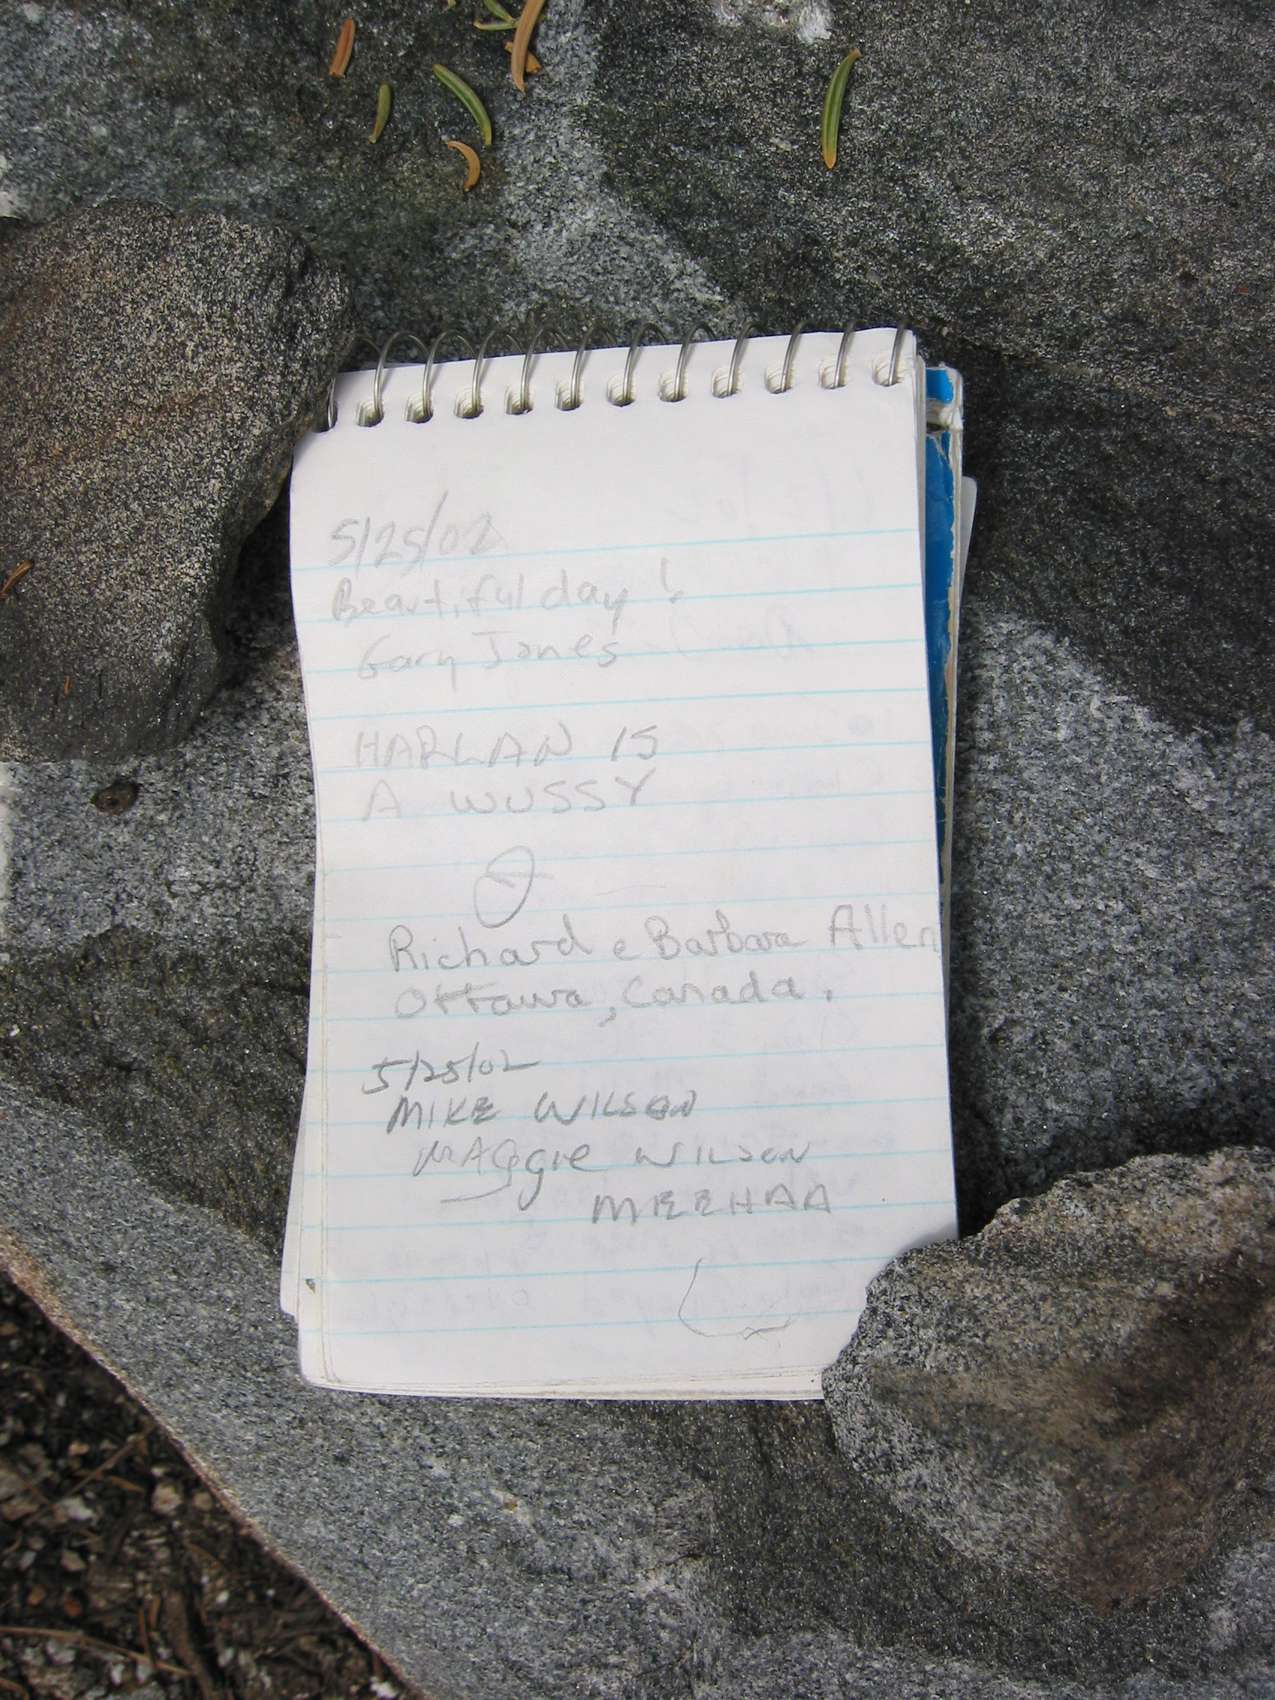 5/25/02
Beautiful day!
Gary Jones
HARLAN IS
A WUSSY
Richard e Barbara Allen
Ottawa, Canada.
5/25/02
MIKE WILSON
MAGgie WILSON